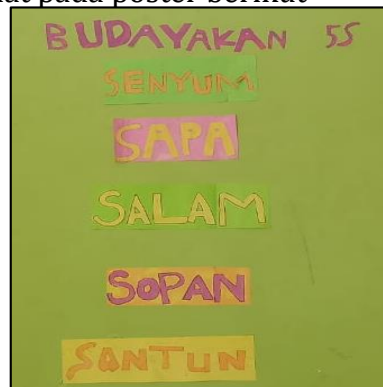 pada poster berikut
BUDAYAKAN 5S
SENYUM
SAPA
SALAM
SOPAN
SANTUN